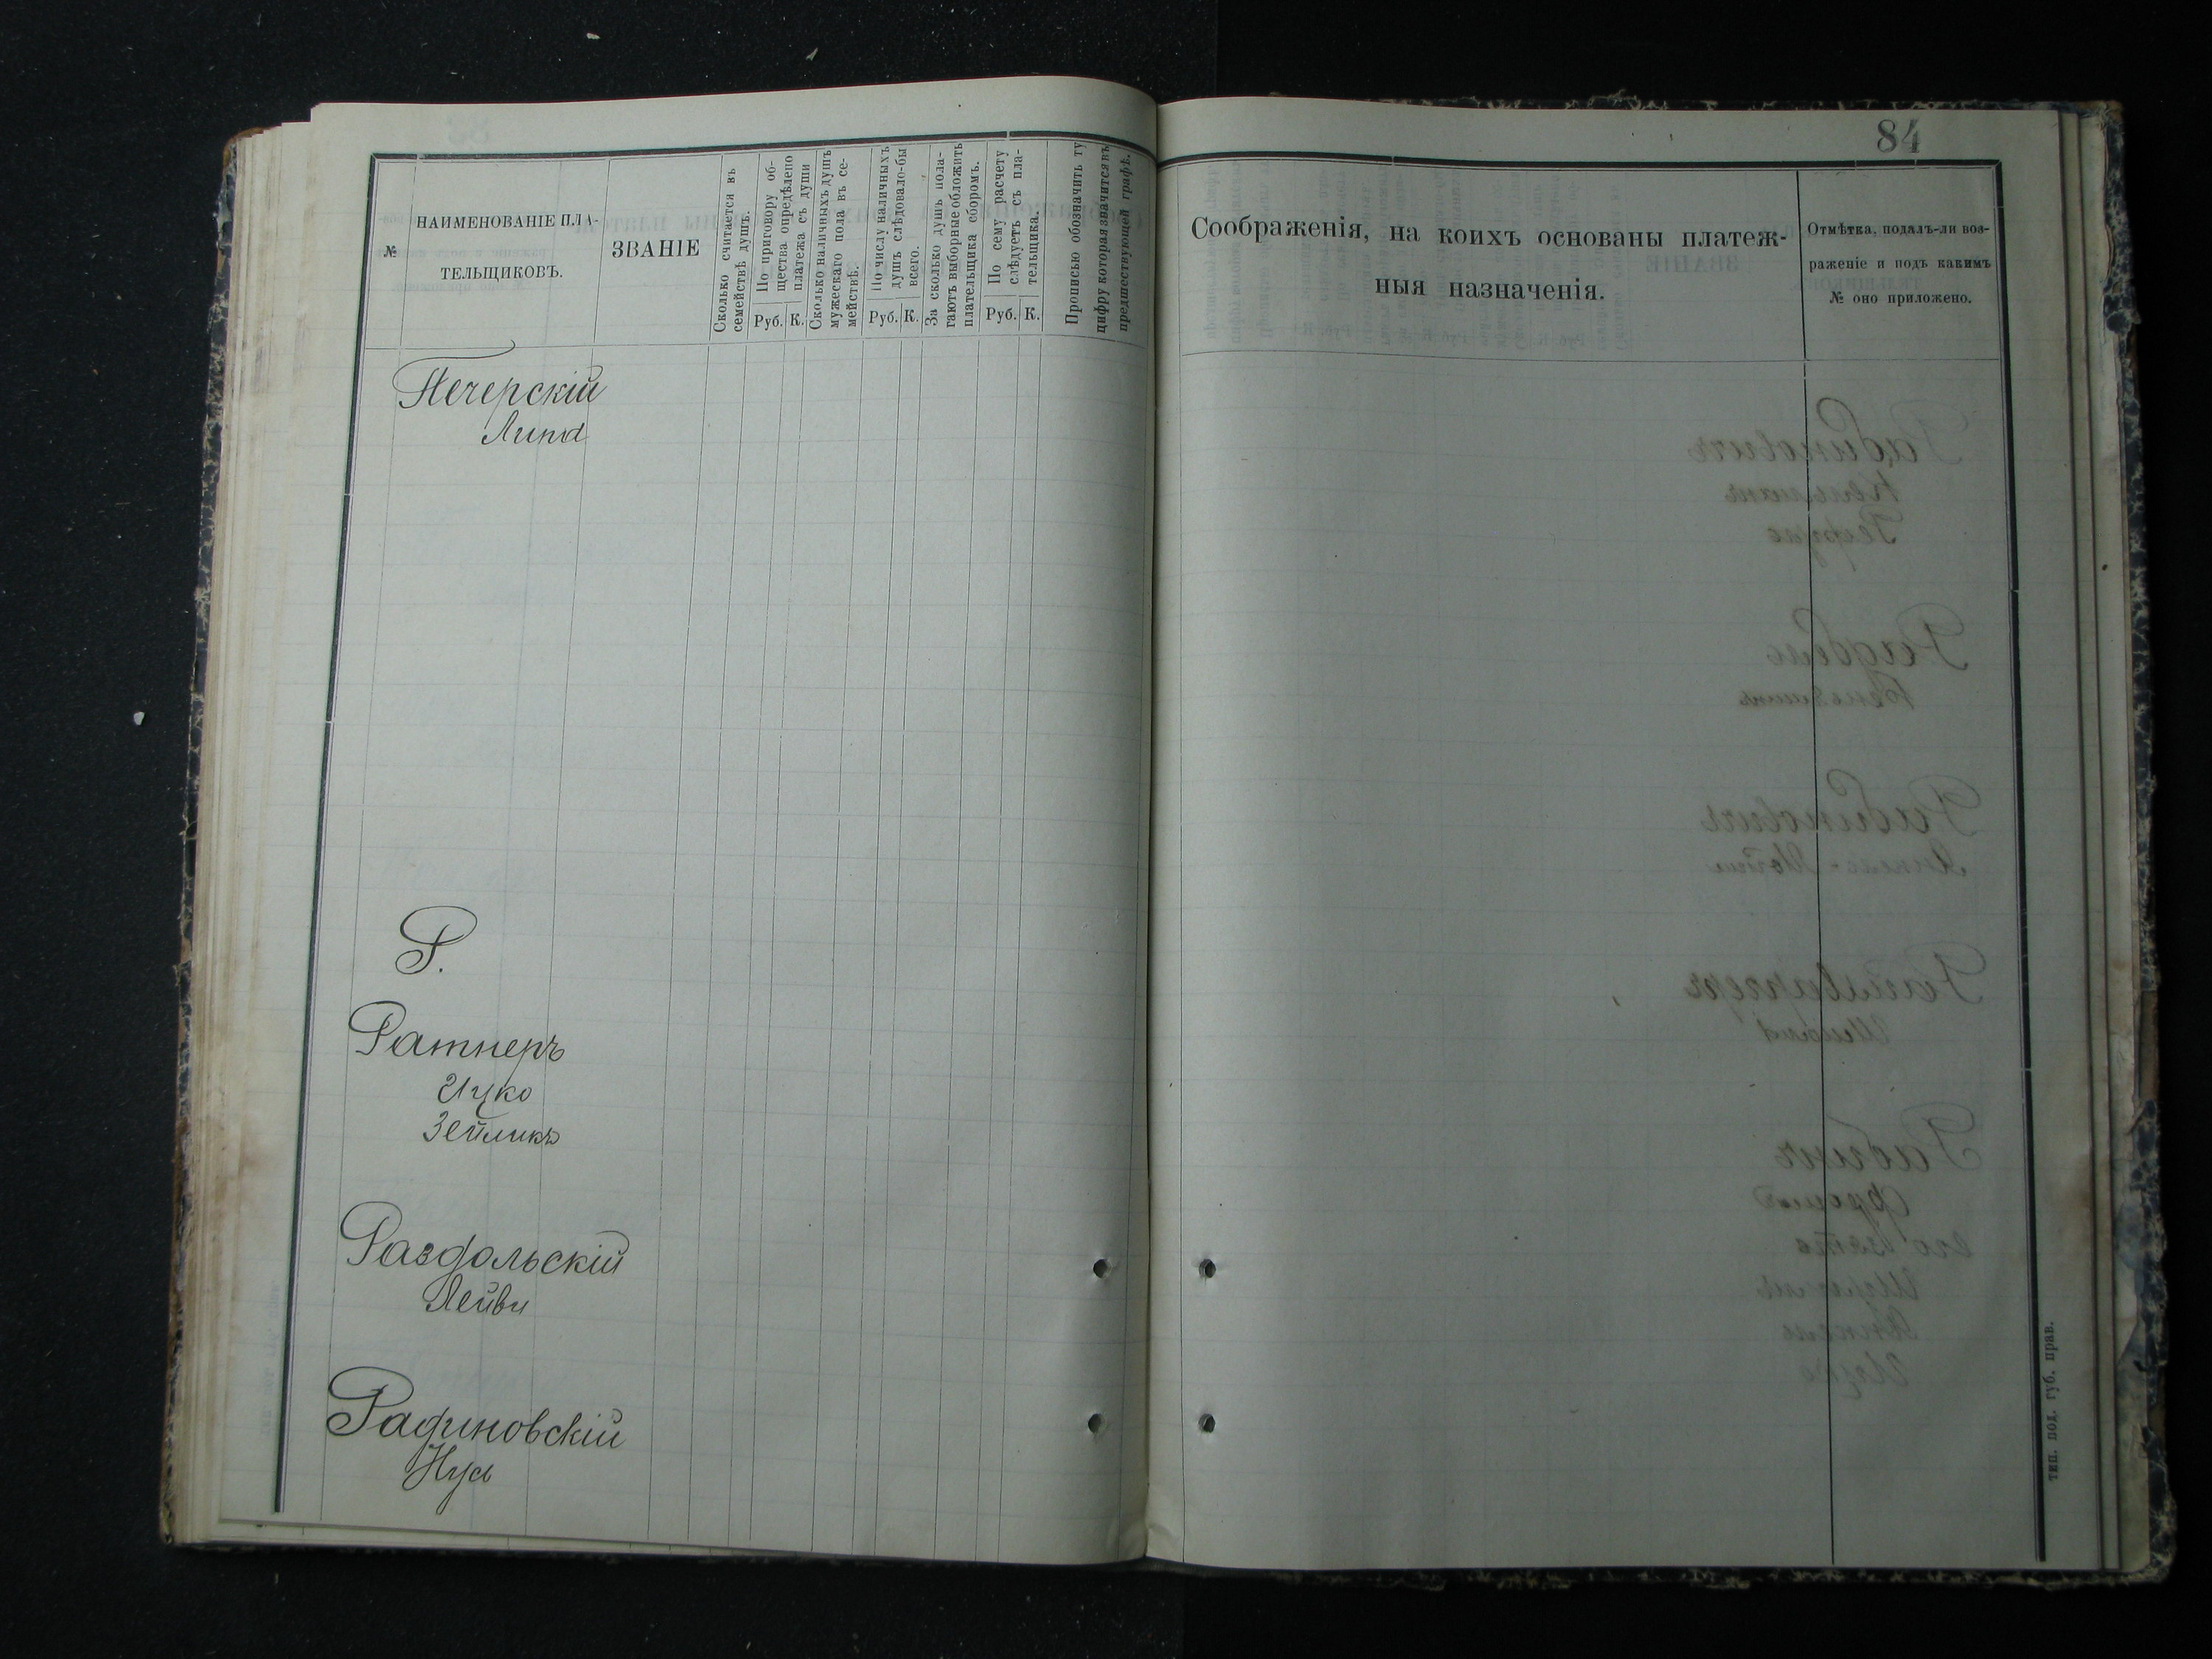 84
№
НАИМЕНОВАНІЕ ПЛА-
ТЕЛЬЩИКОВЪ.
ЗВАНІЕ
Сколько считается въ
семействѣ душъ.
По приговору об-
щества опредѣлено
платежа съ души
Руб. К.
Сколько наличныхъ душъ
мужескаго пола въ се-
мействѣ.
По числу наличныхъ
душъ слѣдовало-бы
всего.
Руб. К.
За сколько душъ пола-
гаютъ выборные обложить
плательщика сборомъ.
По сему расчету
слѣдуетъ съ пла-
тельщика.
Руб. К.
Прописью обозначить ту
цифру которая значится въ
предшествующей графѣ.
Соображенія, на коихъ основаны платеж-
ныя назначенія.
Отмѣтка, подалъ-ли воз-
раженіе и подъ какимъ
№ оно приложено.
Печерскій
Липа
Р.
Ратнеръ
Ицко
Зейликъ
Раздольскій
Лейви
Радиновскій
Нусь
тип. под. губ. прав.